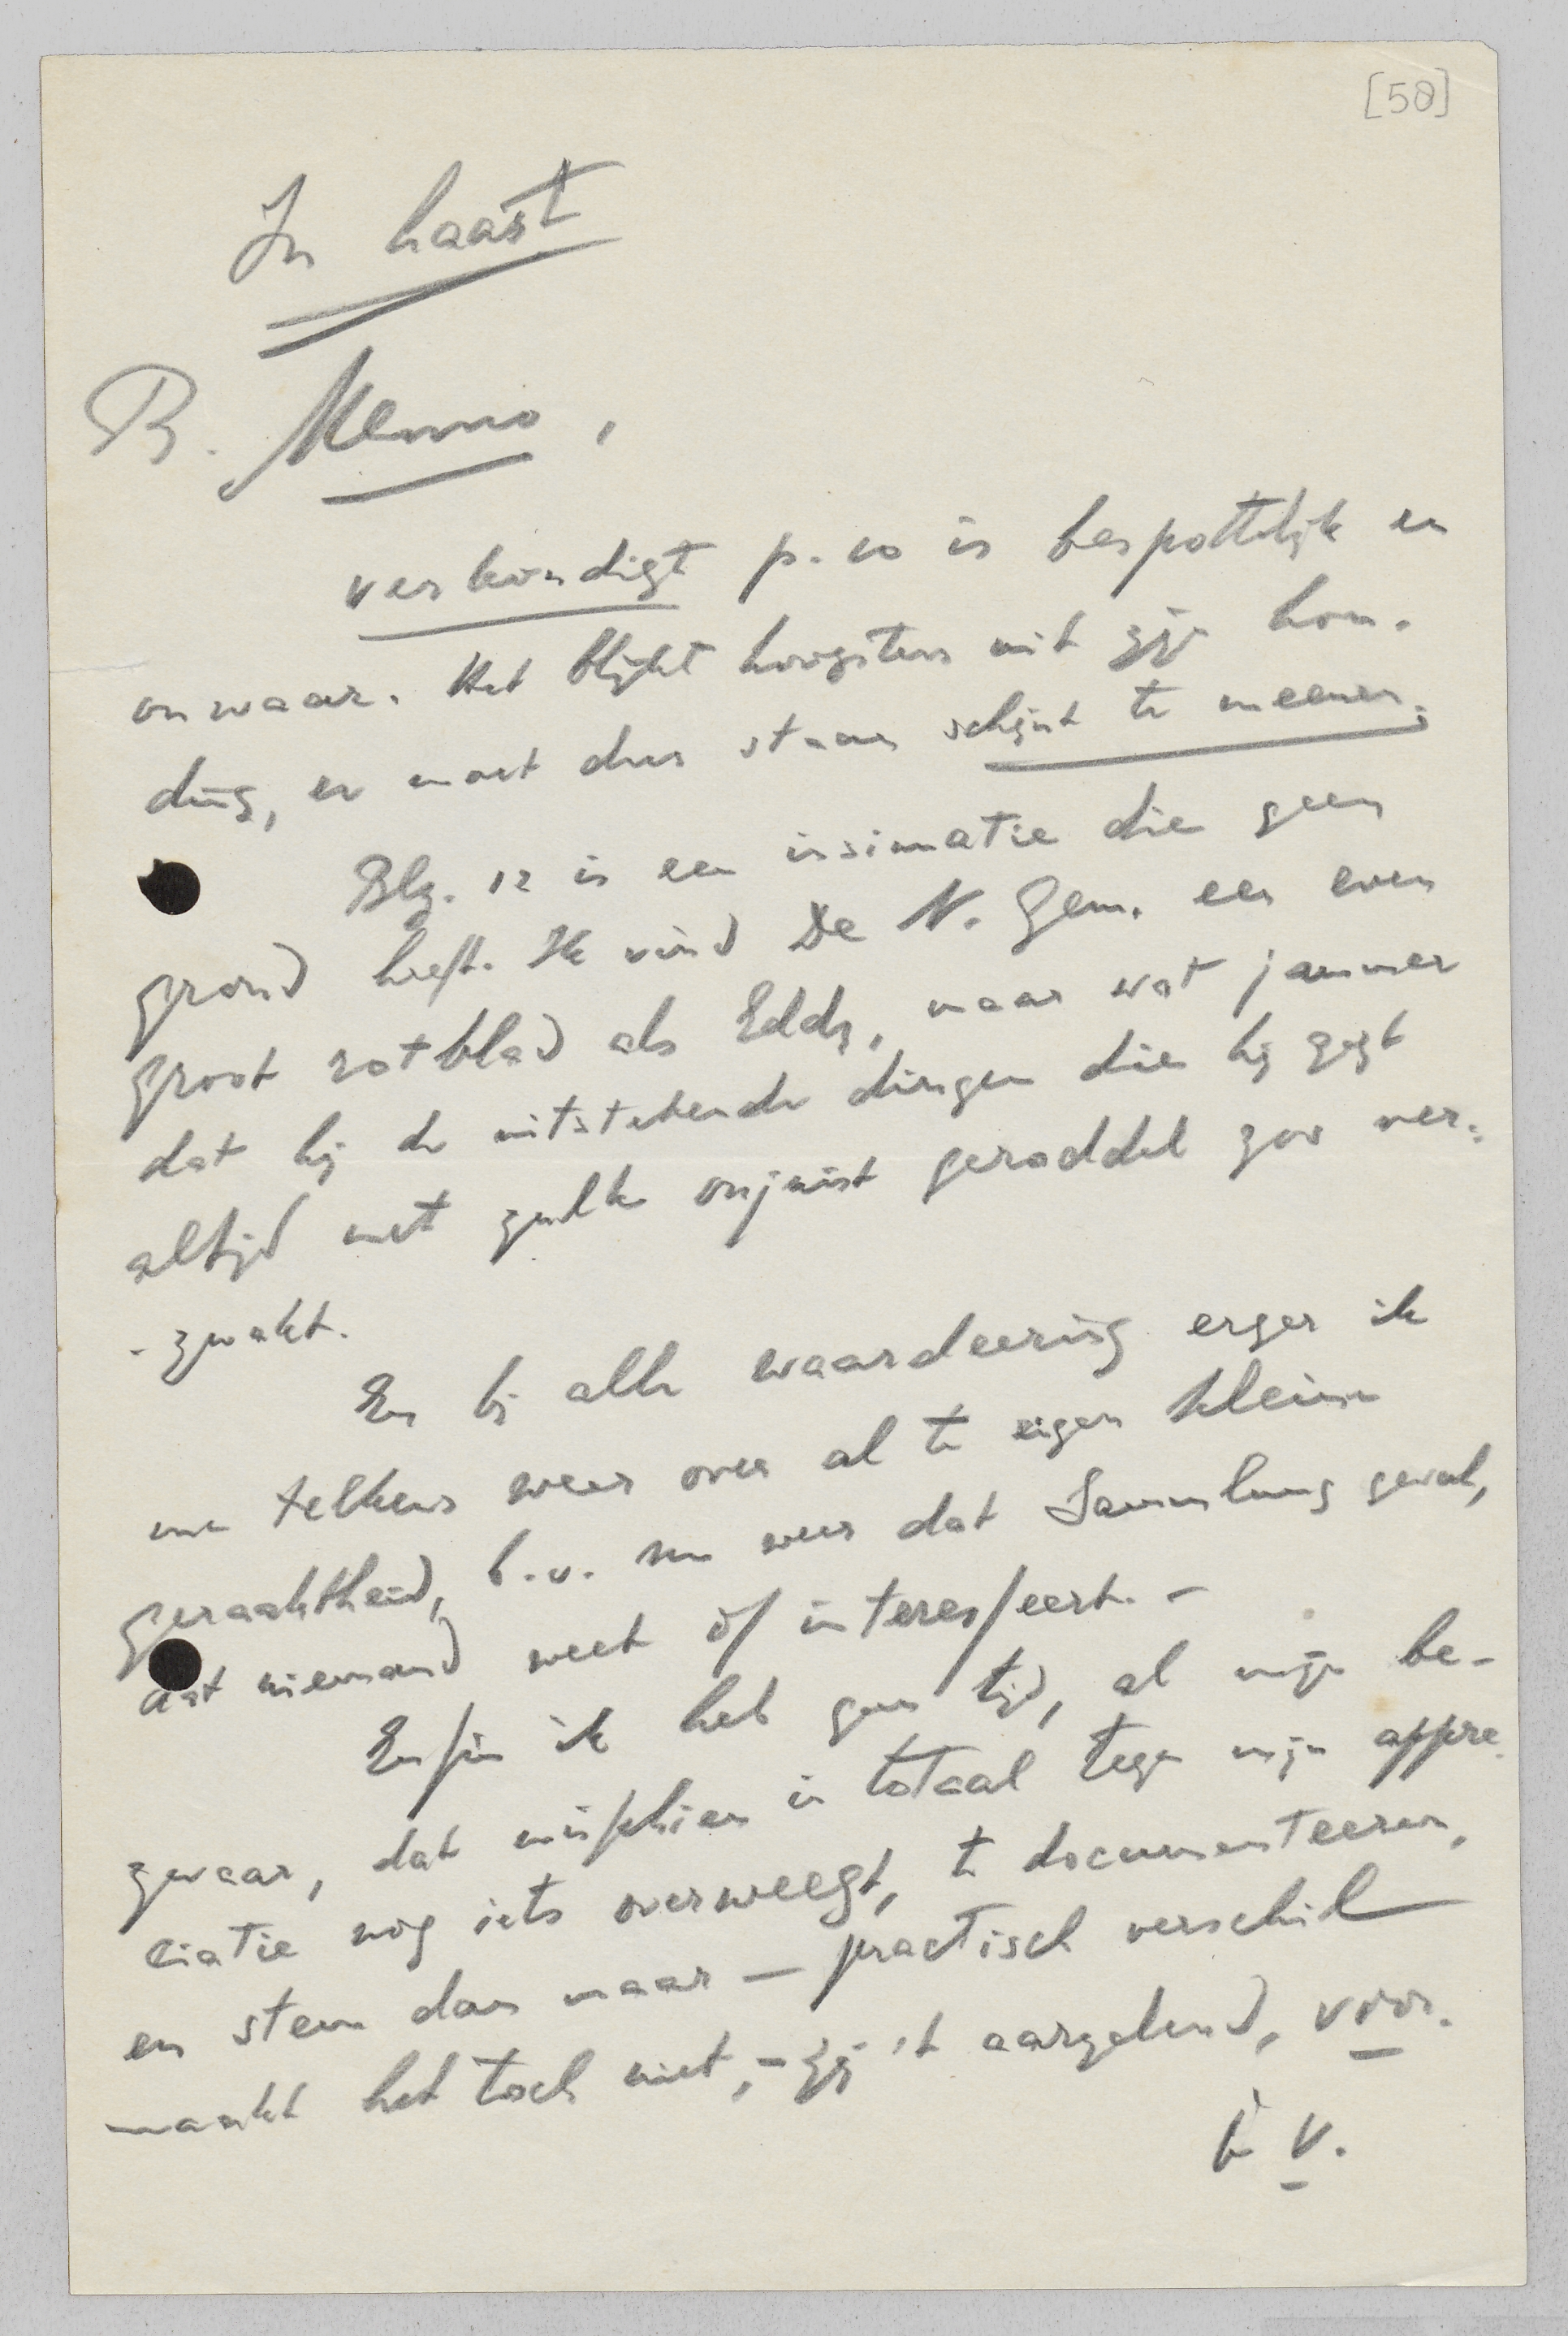 [58]
In haast
B. Menno,
verkondigt p. 10 is bespottelijk en
onwaar. Het blijkt hoogstens uit zijn hou-
ding, er moet dus staan schijnt te meenen.
Blz. 12 is een insinuatie die geen
grond heeft. Ik vind De N. Gem. een even
groot rotblad als Eddy, maar wat jammer
dat hij de uitstekende dingen die hij zegt
altijd met zulk onjuist geroddel zoo ver-
-zwakt.
En bij alle waardeering erger ik
me telkens weer over al te eigen kleine
geraaktheid, b.v. nu weer dat Sammlung geval,
dat niemand weet òf interesseert. –
Enfin ik heb geen tijd, al mijn be-
zwaar, dat misschien in totaal tegen mijn appre-
ciatie nog iets overweegt, te documenteeren,
en stem dan maar – practisch verschil
maakt het toch niet, – zij 't aarzelend, vóór.
V.